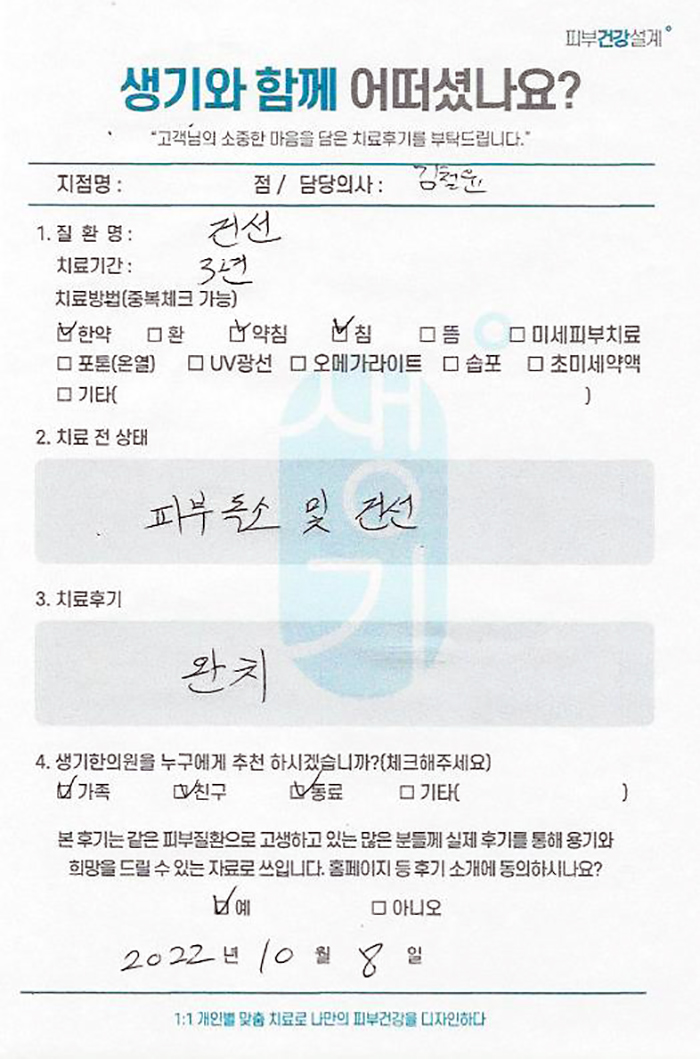 피부건강설계
생기와 함께 어떠셨나요?
"고객님의 소중한 마음을 담은 치료후기를 부탁드립니다."
지점명 : 점 / 담당의사 : 김철윤
1. 질 환 명 : 건선
치료기간 : 3년
치료방법(중복체크 가능)
☑ 한약 □ 환 ☑ 약침 ☑ 침 □ 뜸 □ 미세피부치료
□ 포톤(온열) □ UV광선 □ 오메가라이트 □ 습포 □ 초미세약액
□ 기타( )
2. 치료 전 상태
생기
피부독소 및 건선
3. 치료후기
완치
4. 생기한의원을 누구에게 추천 하시겠습니까?(체크해주세요)
☑ 가족 ☑ 친구 ☑ 동료 □ 기타( )
본 후기는 같은 피부질환으로 고생하고 있는 많은 분들께 실제 후기를 통해 용기와
희망을 드릴 수 있는 자료로 쓰입니다. 홈페이지 등 후기 소개에 동의하시나요?
☑ 예 □ 아니오
2022 년 10 월 8 일
1:1 개인별 맞춤 치료로 나만의 피부건강을 디자인하다